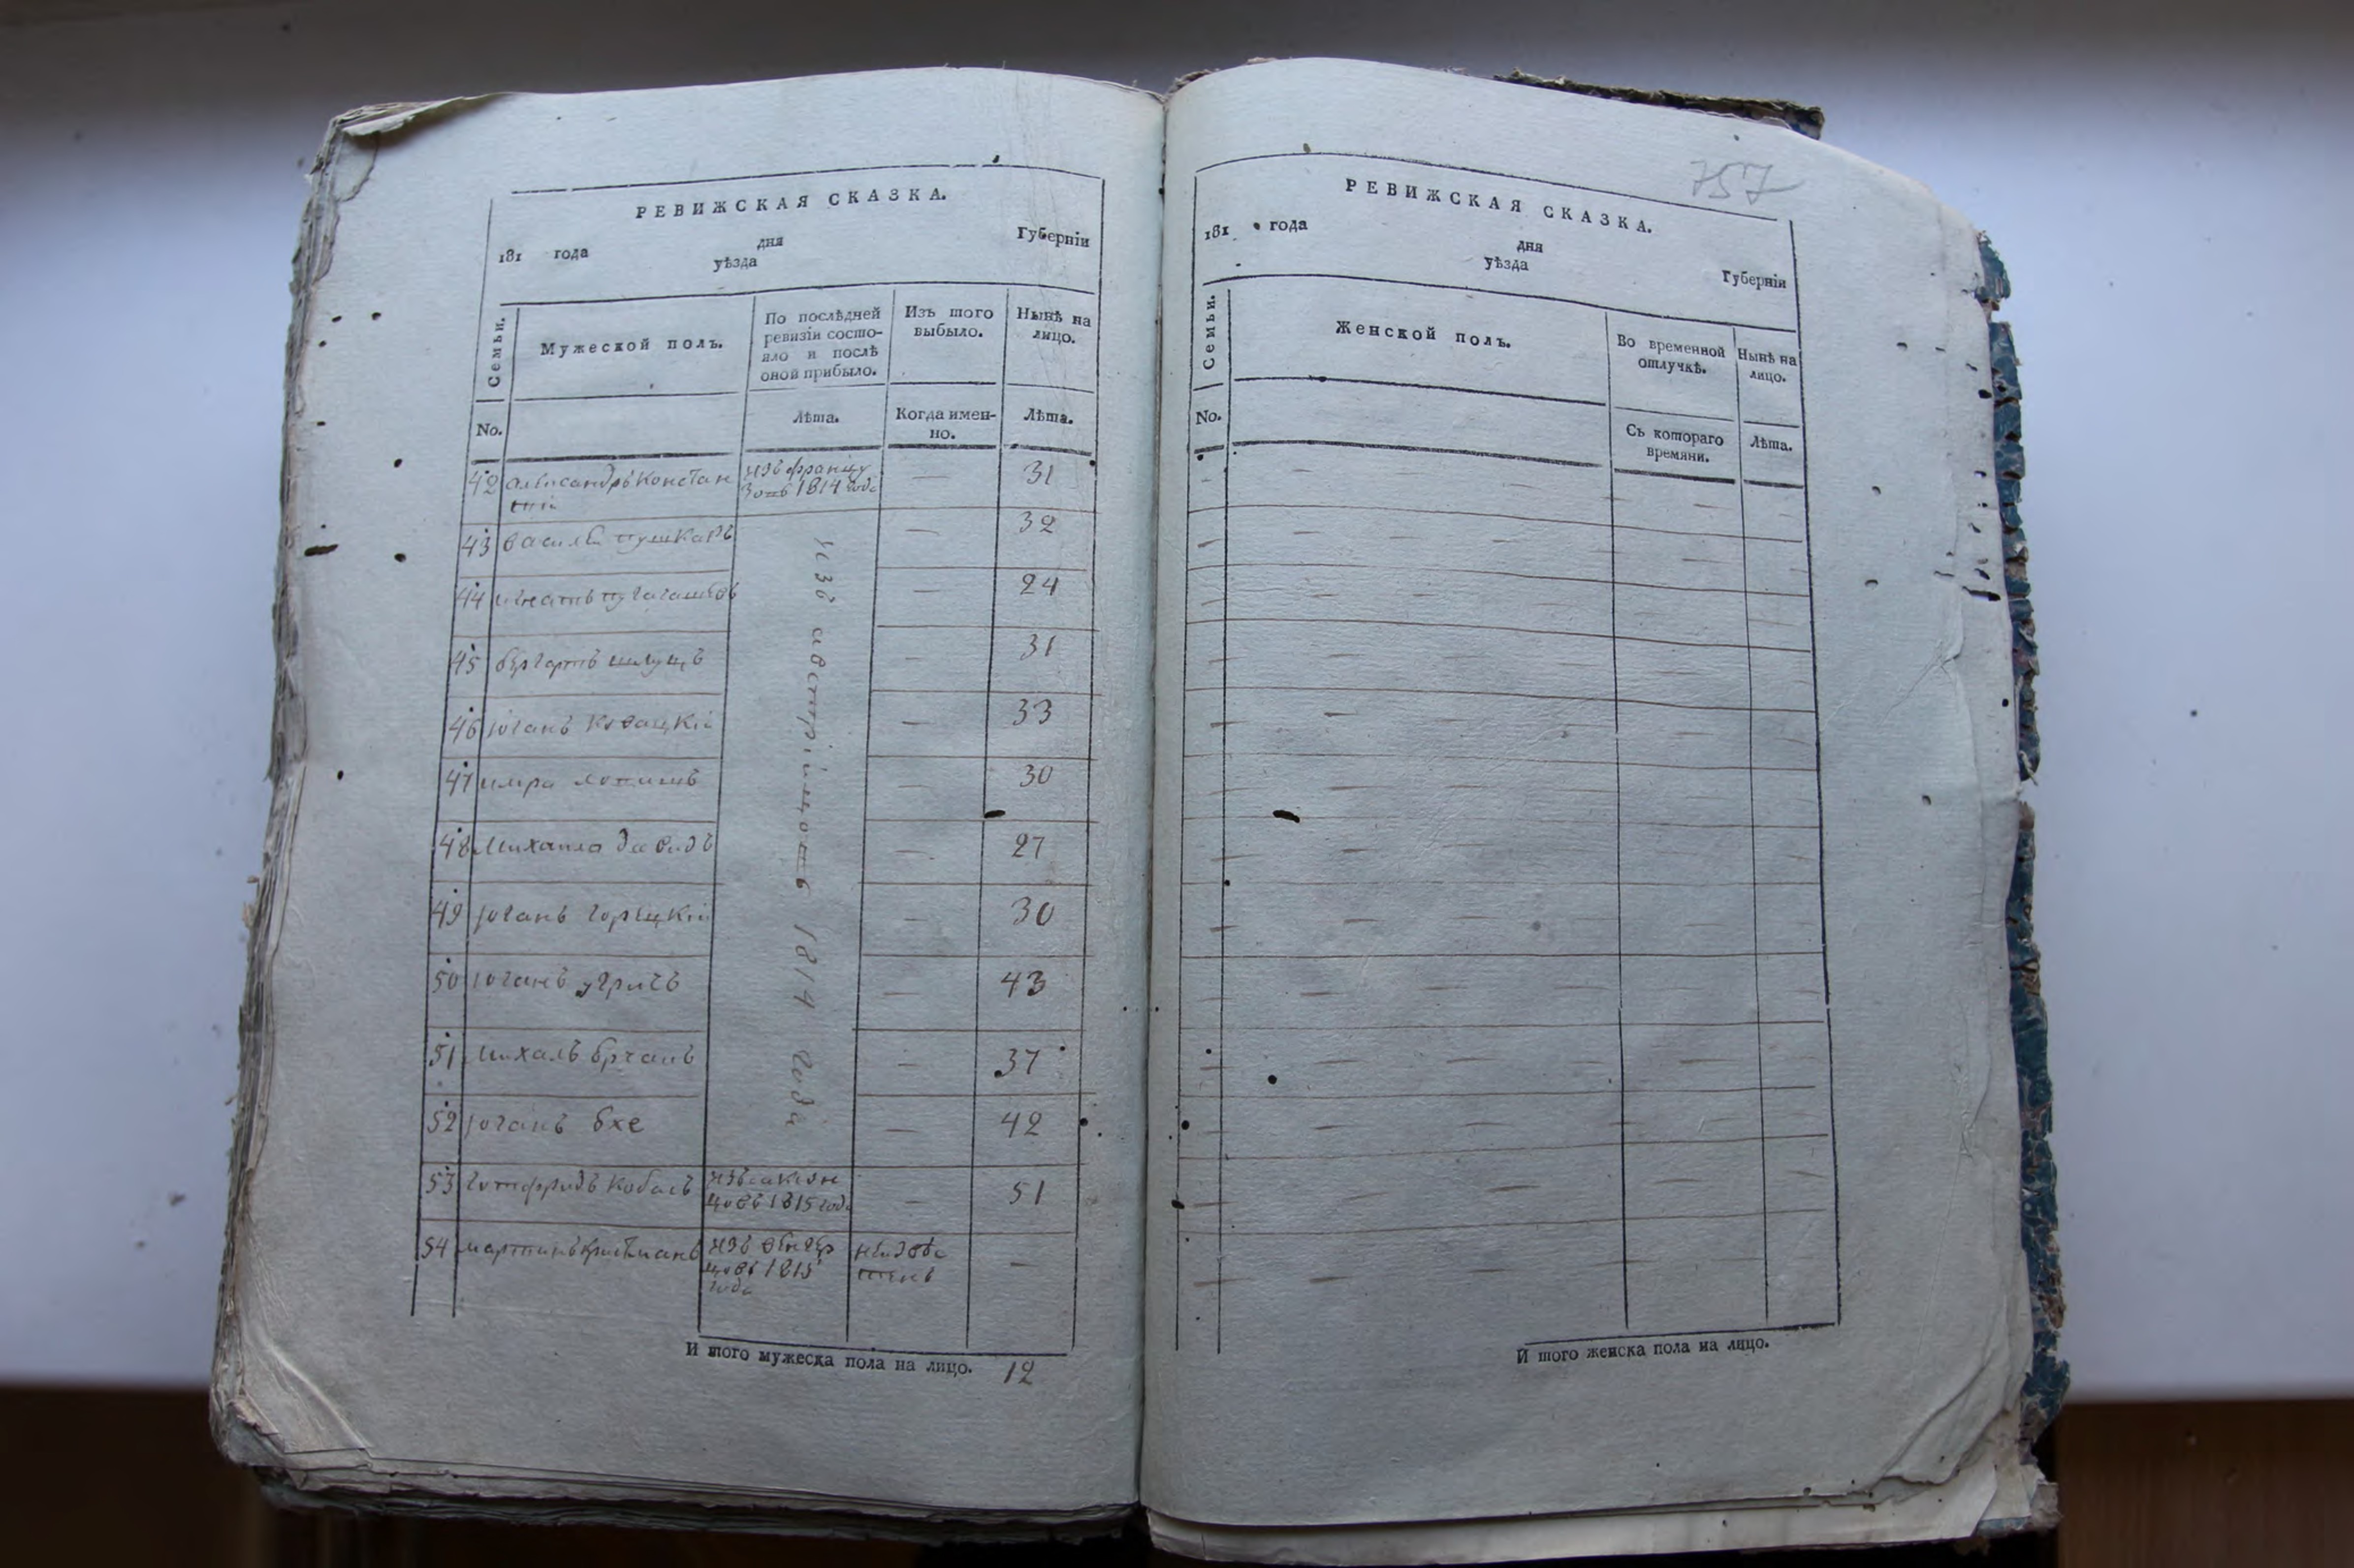 РЕВИЖСКАЯ СКАЗКА.
181 года дня Губерніи
уѣзда
Семьи.
Мужеской полъ.
По послѣдней ревизіи состояло и послѣ оной прибыло.
Изъ того выбыло.
Нынѣ на лицо.
No.
Лѣта.
Когда именно.
Лѣта.
42 александръ Констан изъ францу — 31
тій зовъ 1814 года
43 василѣи пушкаръ — 32
изъ австрійцовъ 1814 года
44 игнатъ — 24
45 шлущъ — 31
46 іоганъ Ковацкій — 33
47 имра — 30
48 Михаила давидъ — 27
49 іоганъ горецкій — 30
50 іоганъ угричъ — 43
51 михалъ — 37
52 іоганъ бхе — 42
53 готфридъ Кобасъ изъ саксон — 51
цовъ 1815 года
54 мартинъ изъ венгер —
цовъ 1815
года
И того мужеска пола на лицо. 12
757
РЕВИЖСКАЯ СКАЗКА.
181 года дня Губерніи
уѣзда
Семьи.
Женской полъ.
Во временной отлучкѣ.
Нынѣ на лицо.
No.
Съ котораго времяни.
Лѣта.
И того женска пола на лицо.